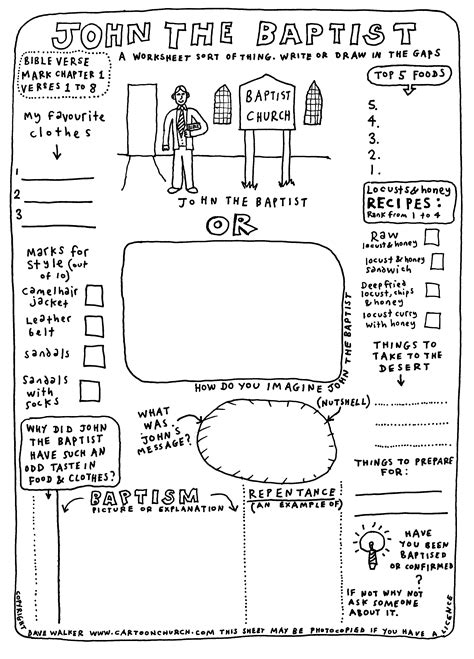 JOHN THE BAPTIST
A WORKSHEET SORT OF THING. WRITE OR DRAW IN THE GAPS
BIBLE VERSE
MARK CHAPTER 1
VERSES 1 TO 8
My favourite
clothes
1
2
3
BAPTIST
CHURCH
JOHN THE BAPTIST
OR
TOP 5 FOODS
5.
4.
3.
2.
1.
Locusts & honey
RECIPES:
Rank from 1 to 4
Raw
locust & honey
locust & honey
sandwich
Deep fried
locust, chips
& honey
locust curry
with honey
Marks for
style (out
of 10)
Camelhair
jacket
Leather
belt
Sandals
Sandals
with
socks
HOW DO YOU IMAGINE JOHN THE BAPTIST
THINGS TO
TAKE TO THE
DESERT
WHAT
WAS
JOHN'S
MESSAGE?
(NUTSHELL)
WHY DID JOHN
THE BAPTIST
HAVE SUCH AN
ODD TASTE IN
FOOD & CLOTHES?
THINGS TO PREPARE
FOR:
BAPTISM
PICTURE OR EXPLANATION
REPENTANCE
(AN EXAMPLE OF)
HAVE
YOU BEEN
BAPTISED
OR CONFIRMED
?
IF NOT WHY NOT
ASK SOMEONE
ABOUT IT.
COPYRIGHT DAVE WALKER WWW.CARTOONCHURCH.COM THIS SHEET MAY BE PHOTOCOPIED IF YOU HAVE A LICENCE